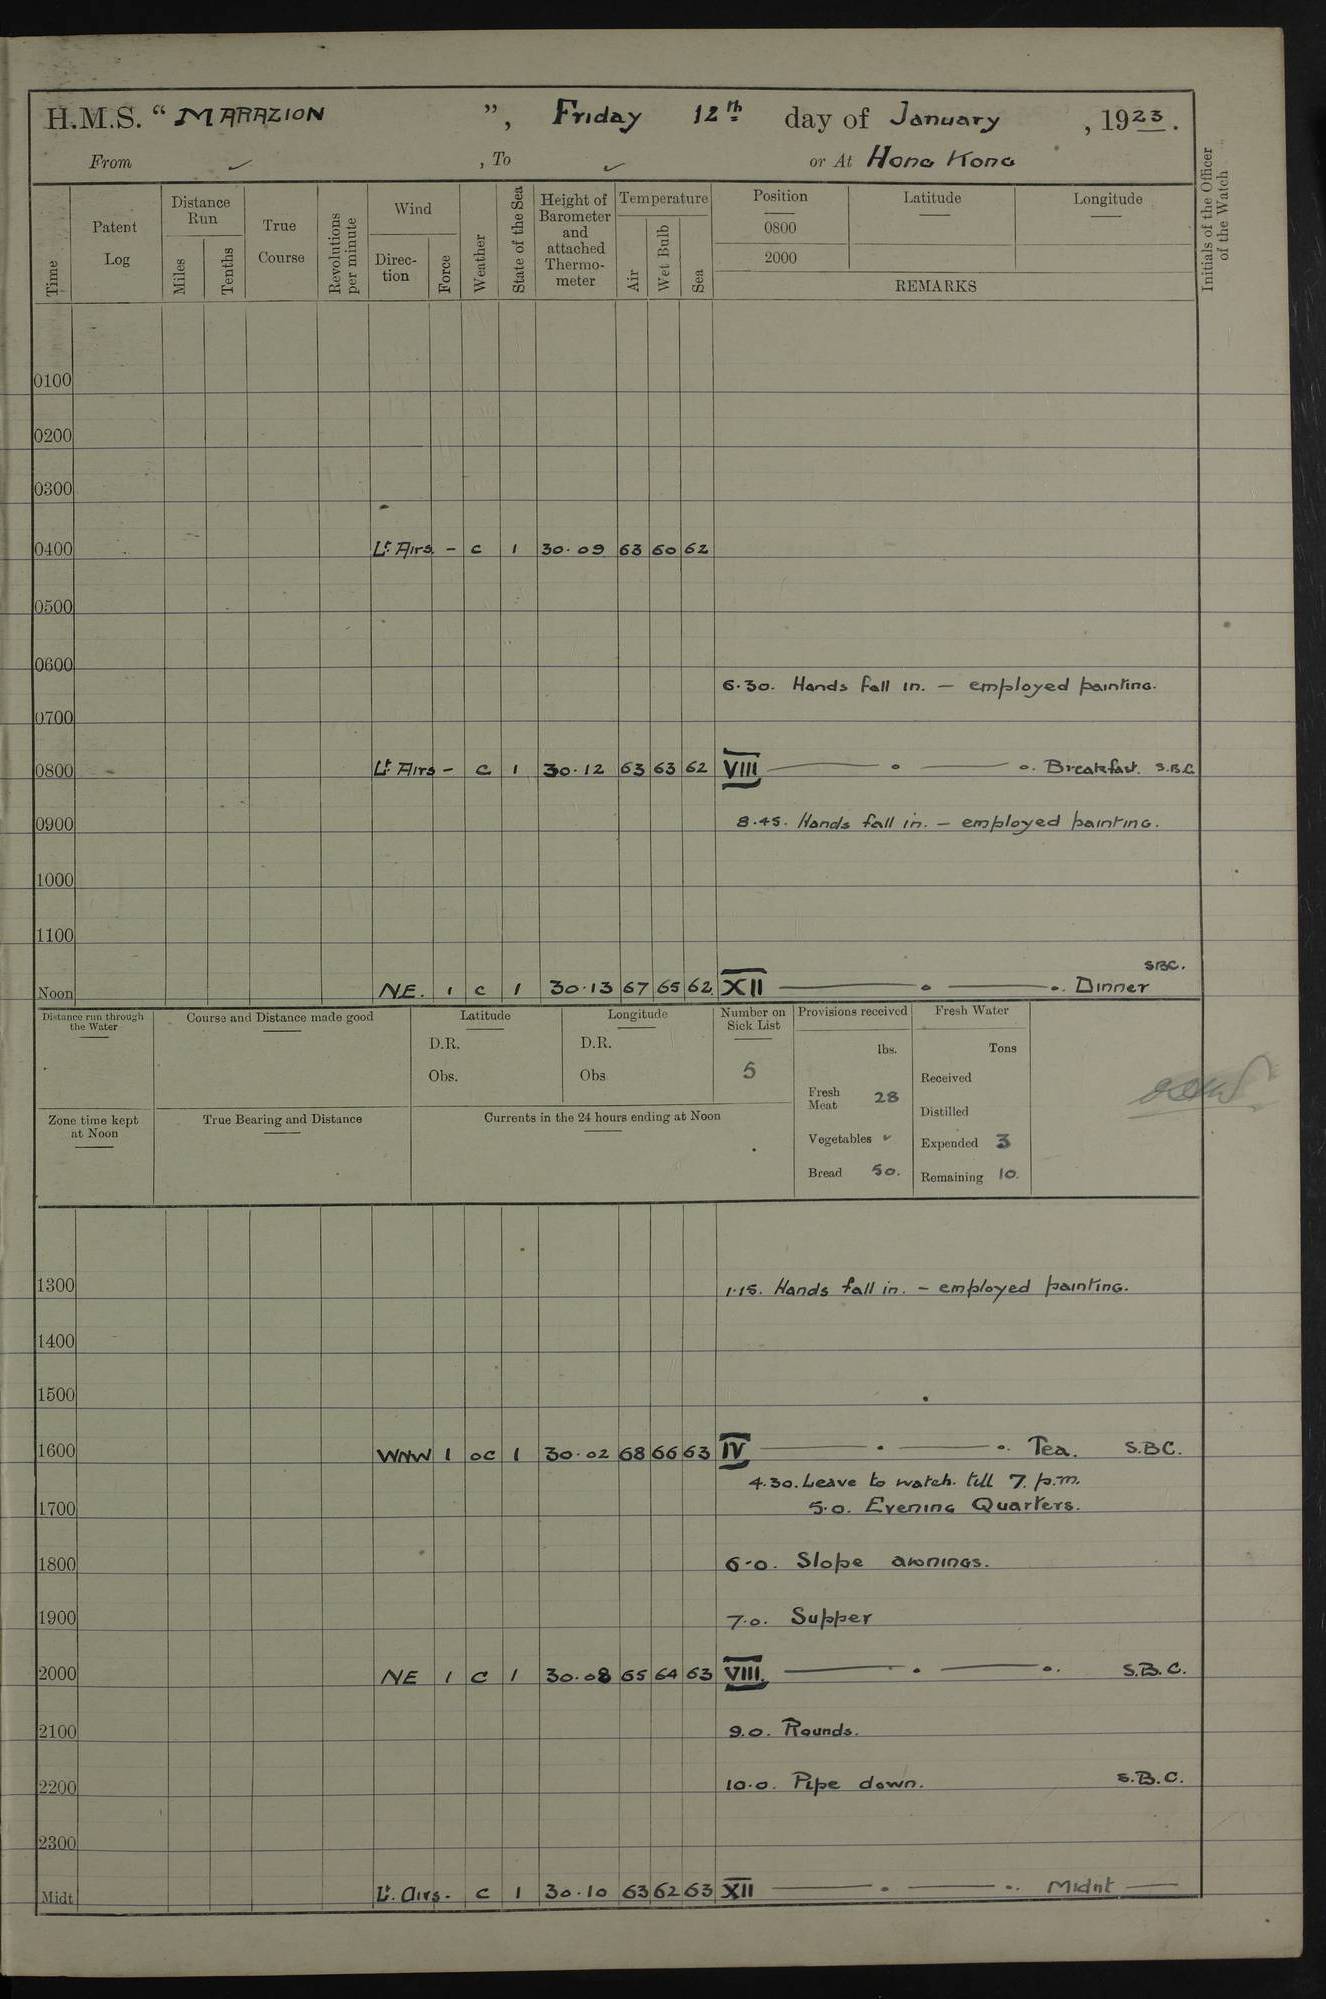 H.M.S. “ MARAZION ”, Friday 12th day of January , 1923.
From ✓ , To ✓ or At Hong Kong
Time
Patent Log
Distance Run
Miles
Tenths
True Course
Revolutions per minute
Wind
Direc-tion
Force
Weather
State of the Sea
Height of Barometer and attached Thermo-meter
Temperature
Air
Wet Bulb
Sea
Position
0800
2000
Latitude
Longitude
REMARKS
Initials of the Officer of the Watch
0100
0200
0300
0400 Lt. Airs. - c 1 30.09 63 60 62
0500
0600
6.30. Hands fall in. — employed painting.
0700
0800 Lt. Airs - c 1 30.12 63 63 62 VIII Breakfast. S.B.C
8.45. Hands fall in. — employed painting.
0900
1000
1100
SBC.
Noon NE. 1 c 1 30.13 67 65 62 XII Dinner
Distance run through the Water
Course and Distance made good
Latitude
D.R.
Obs.
Longitude
D.R.
Obs
Number on Sick List
5
Provisions received
lbs.
Fresh Meat 28
Vegetables ✓
Bread 50.
Fresh Water
Tons
Received
Distilled
Expended 3
Remaining 10.
Zone time kept at Noon
True Bearing and Distance
Currents in the 24 hours ending at Noon
1300 1.15. Hands fall in. - employed painting.
1400
1500
1600 WNW 1 oc 1 30.02 68 66 63 IV Tea. S.B.C.
4.30. Leave to watch. till 7. p.m.
1700 5.0. Evening Quarters.
1800 6-0. Slope awnings.
1900 7.0. Supper
2000 NE 1 C 1 30.08 65 64 63 VIII. S.B.C.
2100 9.0. Rounds.
2200 10.0. Pipe down. S.B.C.
2300
Midt Lt. Airs. - c 1 30.10 63 62 63 XII Midnt